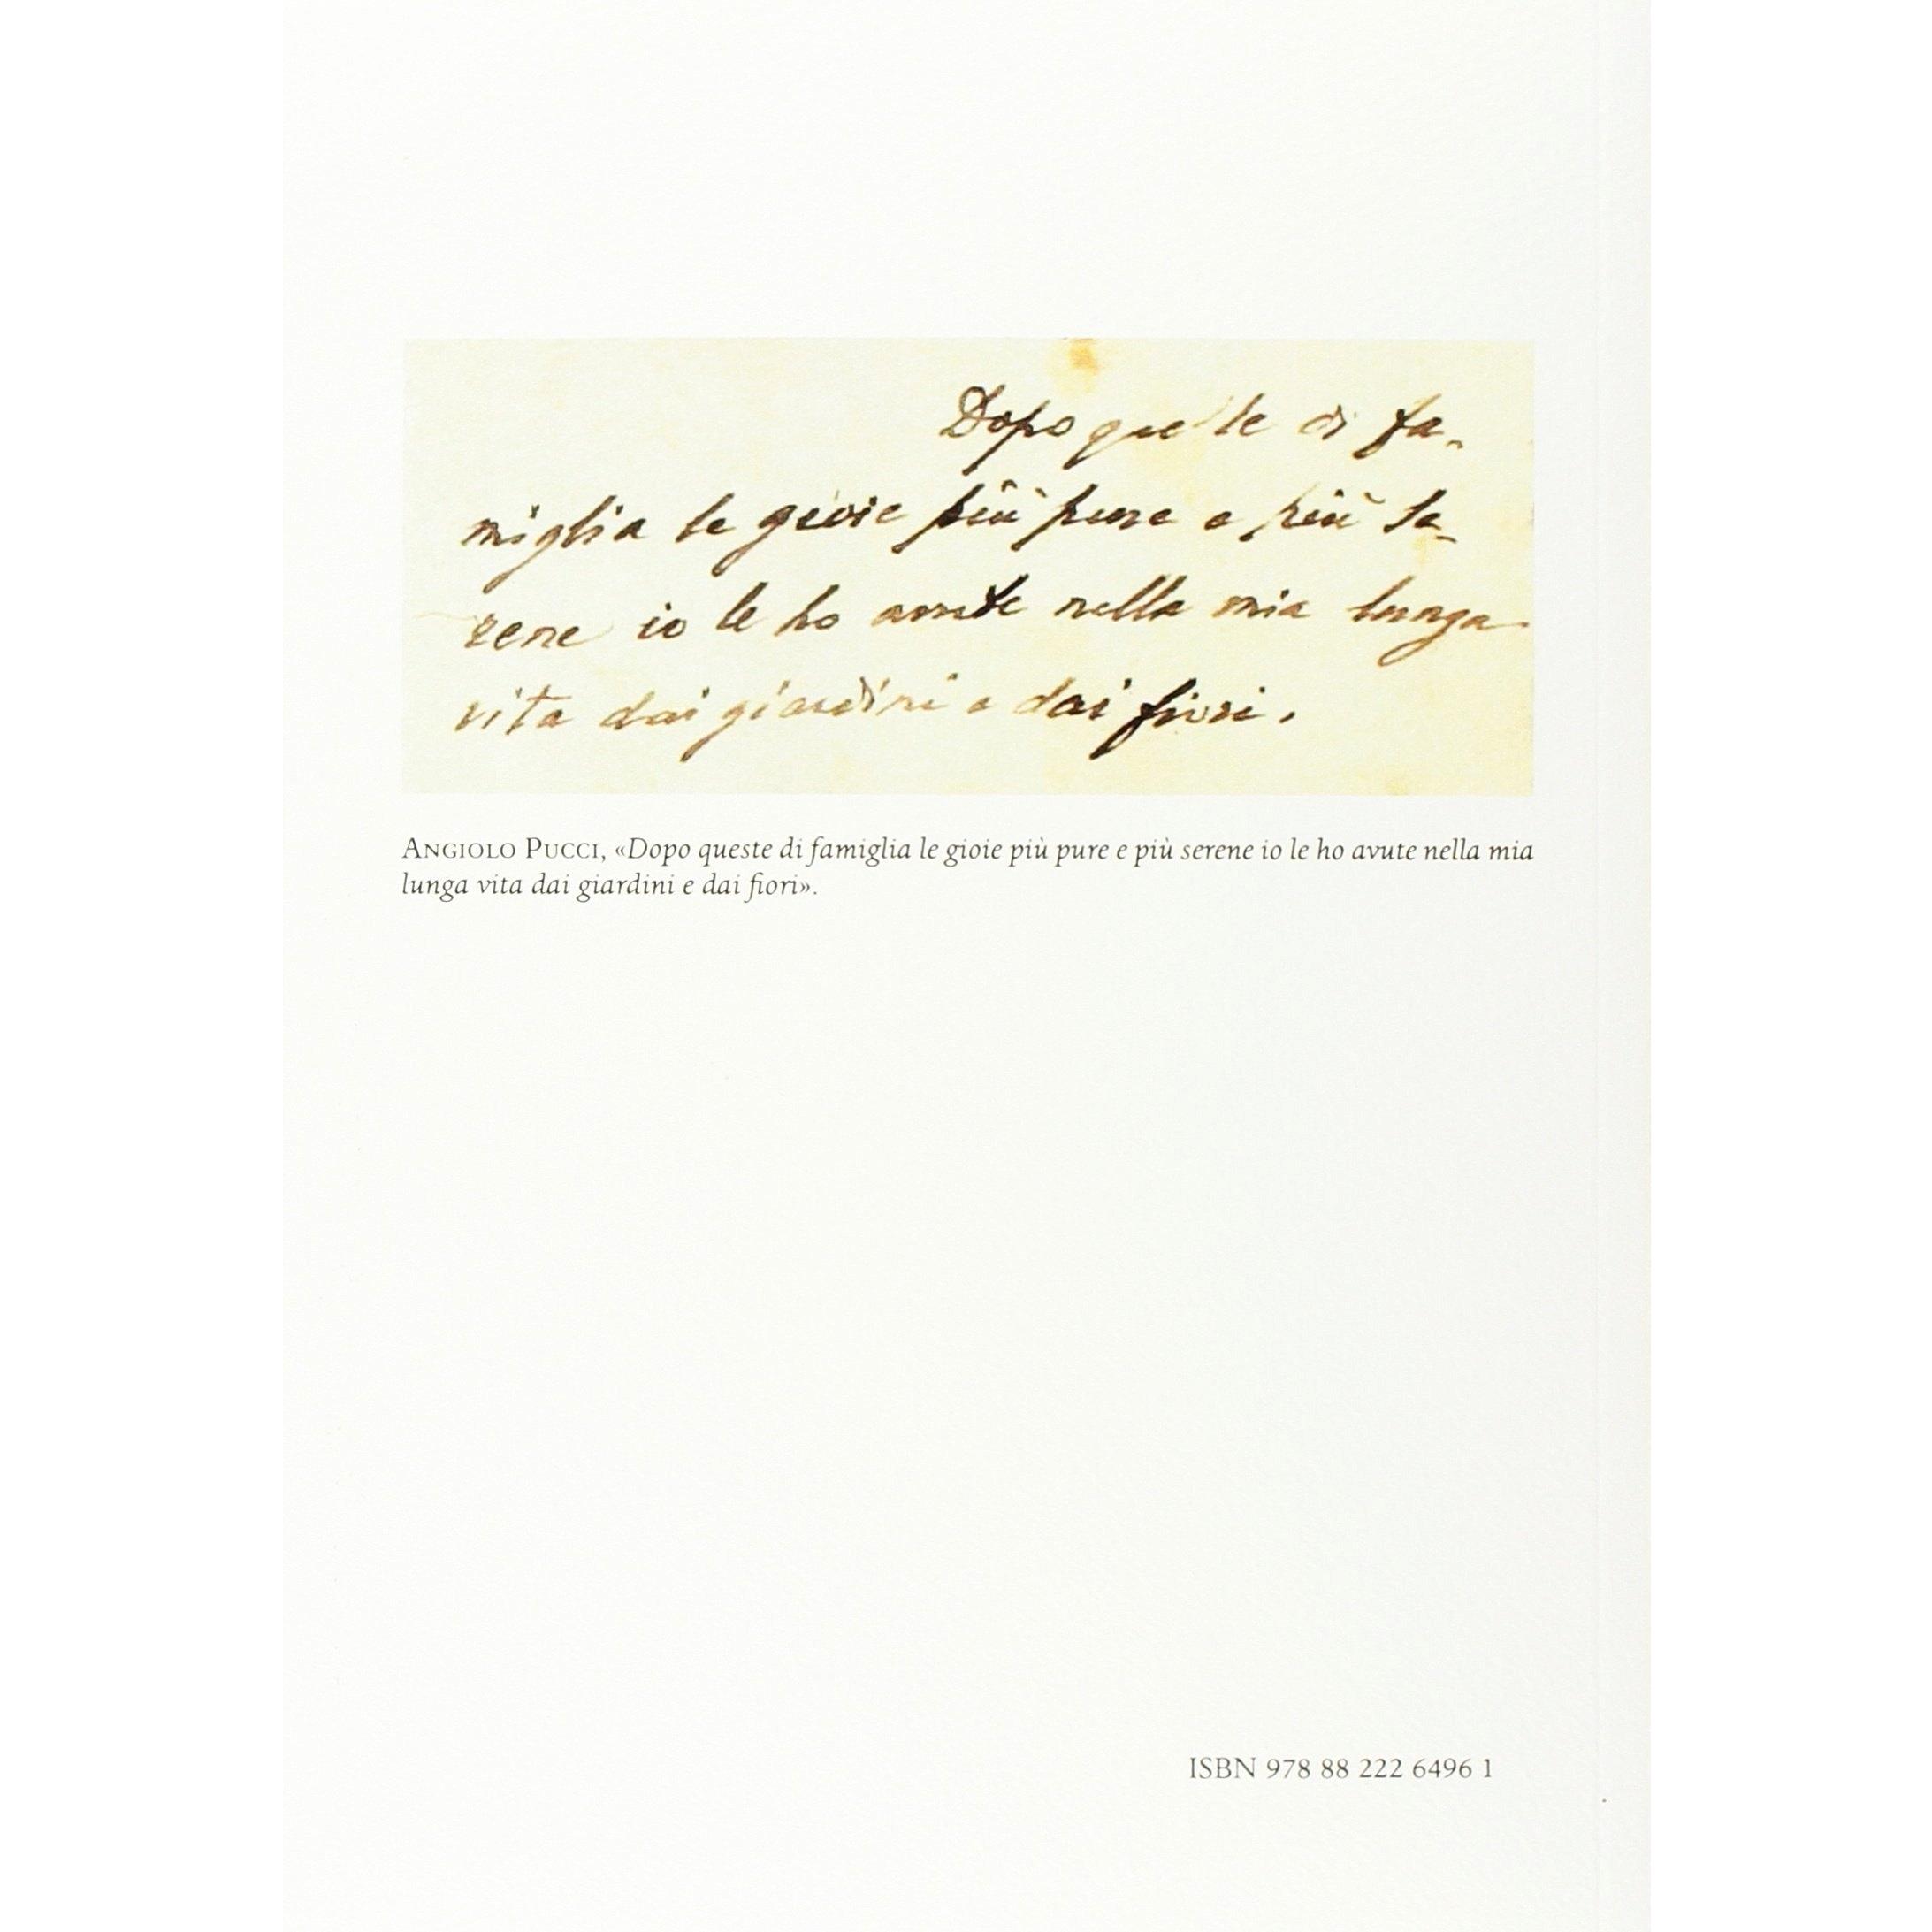 Dopo quelle di fa-
miglia le gioie più pure e più se-
rene io le ho avute nella mia lunga
vita dai giardini e dai fiori.
ANGIOLO PUCCI, «Dopo queste di famiglia le gioie più pure e più serene io le ho avute nella mia
lunga vita dai giardini e dai fiori».
ISBN 978 88 222 6496 1